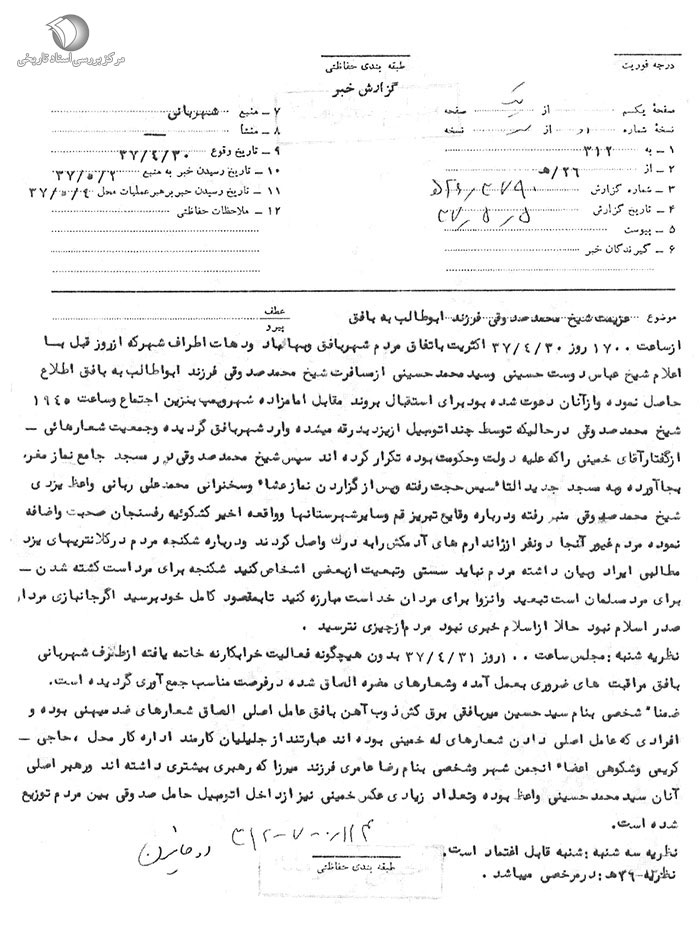 مرکز بررسی اسناد تاریخی
درجه فوریت
طبقه بندی حفاظتی
گزارش خبر
صفحهٔ یکم از یک صفحه
نسخهٔ شماره از نسخه
۱ ـ به ۳۱۲
۲ ـ از ۲۶/ هـ
۳ ـ شمارهٔ گزارش
۴ ـ تاریخ گزارش ۳۷/۵/۵
۵ ـ پیوست
۶ ـ گیرندگان خبر
۷ ـ منبع شهربانی
۸ ـ منشأ
۹ ـ تاریخ وقوع ۳۷/۴/۳۰
۱۰ ـ تاریخ رسیدن خبر به منبع ۳۷/۵/۲
۱۱ ـ تاریخ رسیدن خبر برهبر عملیات محل ۳۷/۵/۴
۱۲ ـ ملاحظات حفاظتی
موضوع عزیمت شیخ محمد صدوقی فرزند ابوطالب به بافق
عطف
پیرو
ازساعت ۱۷۰۰ روز ۳۷/۴/۳۰ اکثریت باتفاق مردم شهربافق وبهاباد ودهات اطراف شهرکه ازروز قبل بسا
اعلام شیخ عباس دوست حسینی وسید محمد حسینی ازمسافرت شیخ محمد صدوقی فرزند ابواطالب به بافق اطلاع
حاصل نموده وازآنان دعوت شده بود برای استقبال بروند مقابل امامزاده شهروپمپ بنزین اجتماع وساعت ۱۹۴۵
شیخ محمد صدوقی درحالیکه توسط چند اتومبیل ازیزد بدرقه میشده وارد شهربافق گردیده وجمعیت شعارهائی ـ
ازگفتارآقای خمینی راکه علیه دولت وحکومت بوده تکرار کرده اند سپس شیخ محمد صدوقی در مسجد جامع نماز مغرب
بجاآورده وبه مسجد جدید التأسیس حجت رفته وپس ازگزاردن نمازعشاء وسخنرانی محمد علی ربانی واعظ یزدی
شیخ محمد صدوقی منبر رفته ودرباره وقایع تبریز قم وسایرشهرستانها وواقعه اخیر کشکوئیه رفسنجان صحبت واضافه
نموده مردم غیور آنجا دونفر ازژاندارم های آدمکش رابه درک واصل کردند ودرباره شکنجه مردم درکلانتریهای یزد
مطالبی ایراد وبیان داشته مردم نباید سستی وتبعیت ازبعضی اشخاص کنید شکنجه برای مرد است کشته شدن ـ
برای مرد مسلمان است تبعید وانزوا برای مردان خداست مبارزه کنید تابمقصود کامل خود برسید اگرجانبازی مردان
صدر اسلام نبود حالا ازاسلام خبری نبود مردم ازچیزی نترسید .
نظریه شنبه : مجلس ساعت ۱۰۰ روز ۳۷/۴/۳۱ بدون هیچگونه فعالیت خرابکارنه خاتمه یافته ازطرف شهربانی
بافق مراقبت های ضروری بعمل آمده وشعارهای مضره الصاق شده درفرصت مناسب جمع آوری گردیده است.
ضمناً شخصی بنام سید حسین میربافقی برق کش ذوب آهن بافق عامل اصلی الصاق شعارهای ضد میهنی بوده و
افرادی که عامل اصلی دادن شعارهای له خمینی بوده اند عبارتند از جلیلیان کارمند اداره کار محل ، حاجی ـ
کریمی وشکوهی اعضاء انجمن شهر وشخصی بنام رضا عامری فرزند میرزا که رهبری بیشتری داشته اند ورهبر اصلی
آنان سید محمد حسینی واعظ بوده وتعداد زیادی عکس خمینی نیز ازداخل اتومبیل حامل صدوقی بین مردم توزیع
شده است.
نظریه سه شنبه : شنبه قابل اعتماد است.
نظریه ۳۶ هـ : درمرخصی میباشد .
طبقه بندی حفاظتی